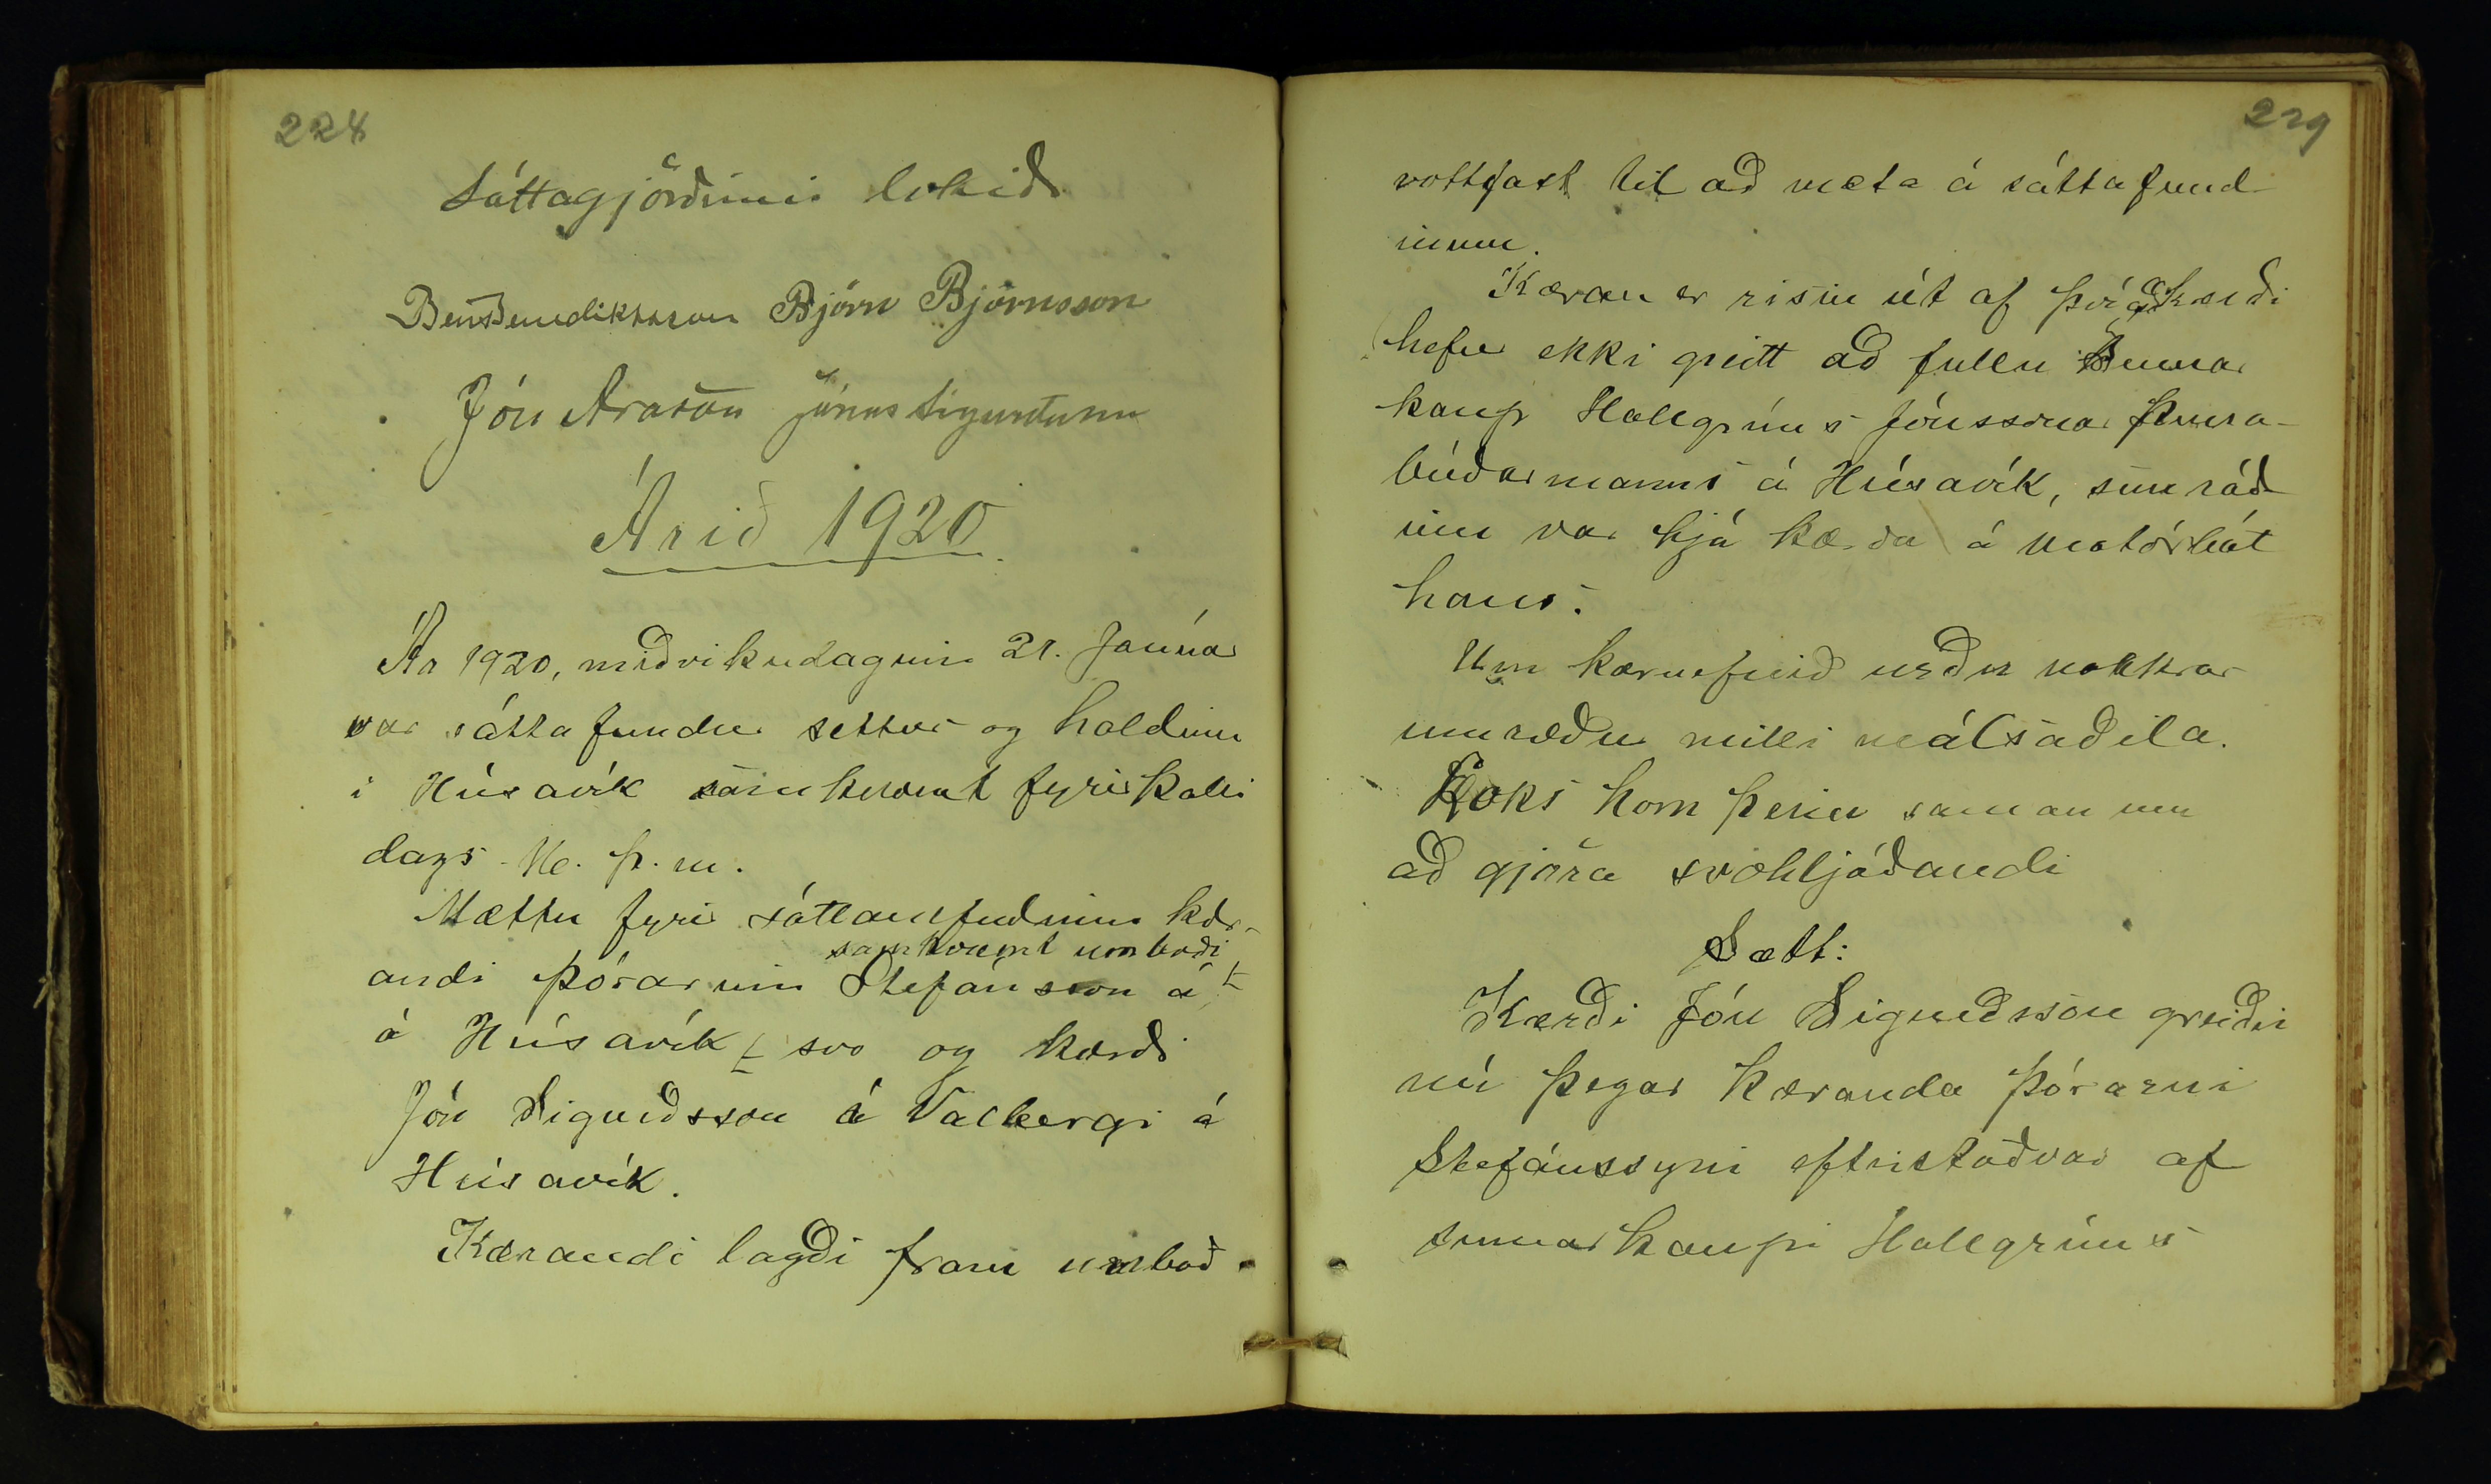 224
Sáttagjörðinni lokið
Ben Benediktsson Björn Björnsson
Jón Arason Jónas Sigurðsson
Árið 1920
Ár 1920, miðvikudaginn 21. Janúar
var sáttafundur settur og haldinn
í Húsavík samkvæmt fyrirkalli
dags. s. þ. m.
Mættu fyrir sáttanefndinni kær-
samkvæmt umboði
andi Þórarinn Stefánsson á
á Húsavík svo og kærði
Jón Sigurðsson á Valbergi á
Húsavík.
Kærandi lagði fram umboð
229
vottfast til að mæta á sáttafund
inum.
Kæran er risin út af því að kærði
hefur ekki greitt að fullu Sumar
kaup Hallgríms Jónssonar þurra-
búðarmanns á Húsavík, sem ráð
inn var hjá kærða á mótórbát
hans.
Um kæruefnið urðu nokkrar
umræður milli málsaðila.
Loks kom þeim saman um
að gjöra svohljóðandi
Sætt:
Kærði Jón Sigurðsson greiðir
nú þegar kæranda Þórarni
Stefánssyni eftirstöðvar af
sumarkaupi Hallgríms